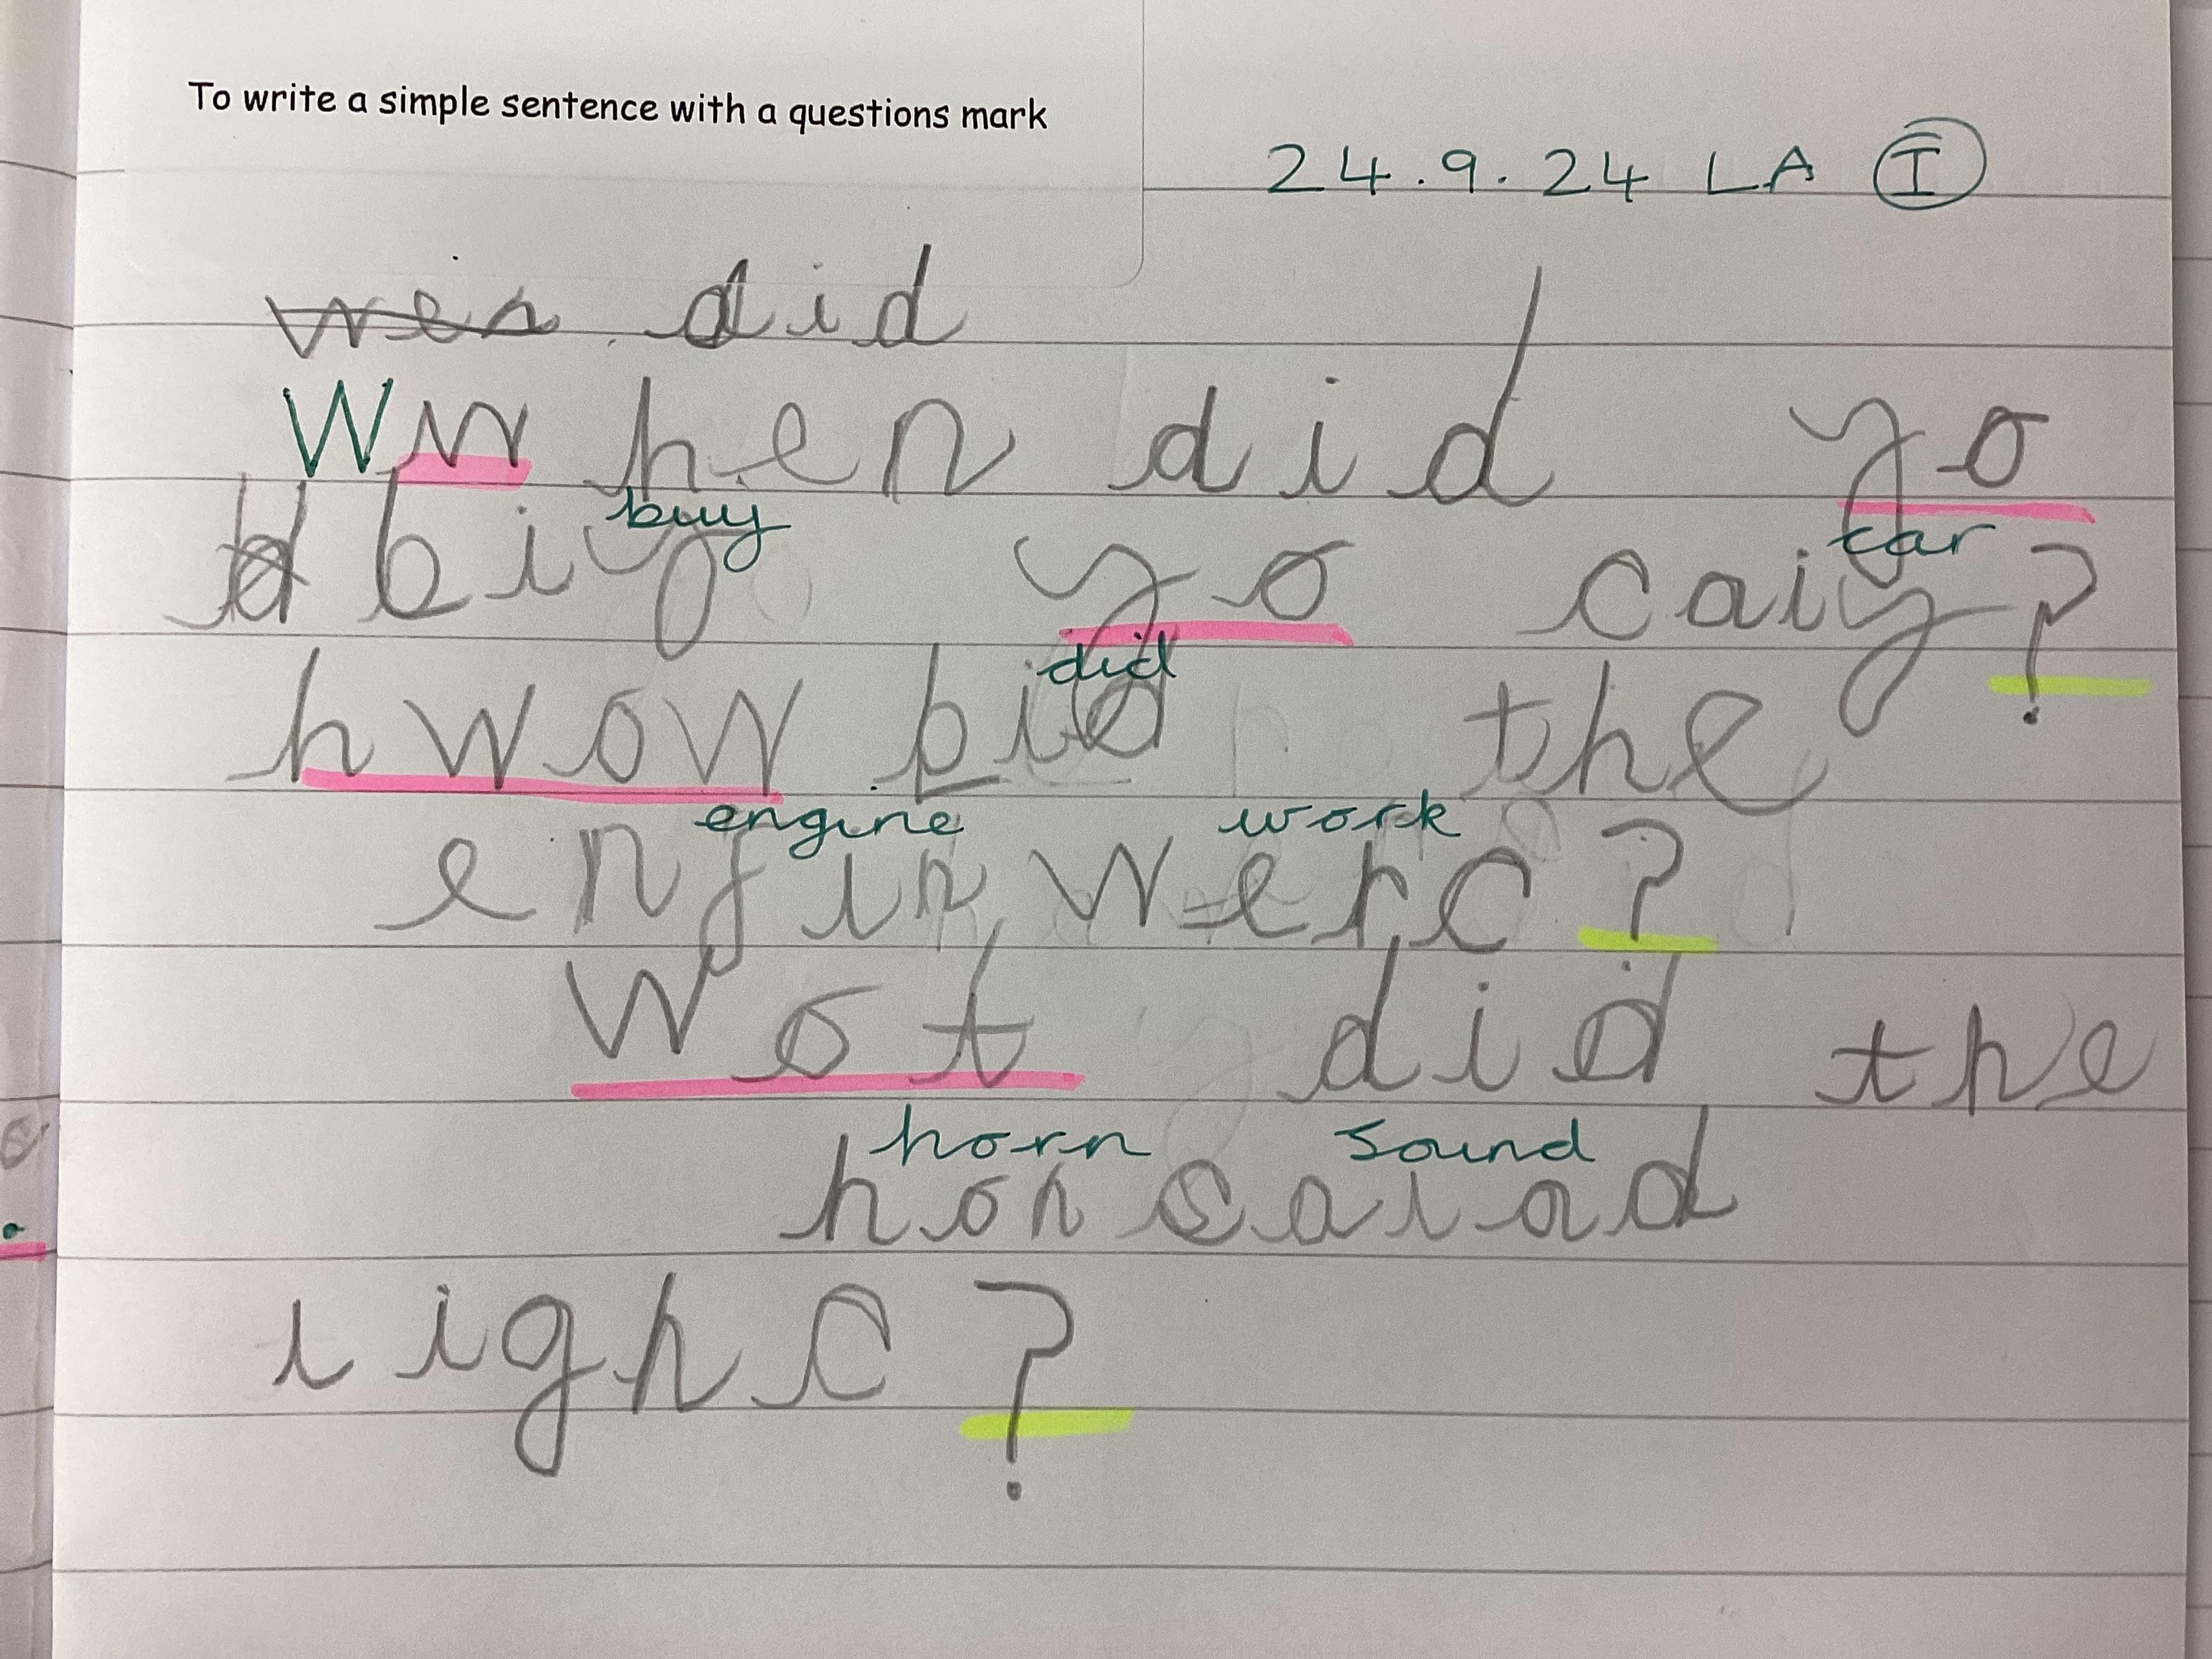 To write a simple sentence with a questions mark
24.9.24 LA I
wen did
W when did yo
buy car
biy yo caiy?
did
hwow bid the
engine work
engin werc?
Wot did the
horn sound
hon saiad
righc?